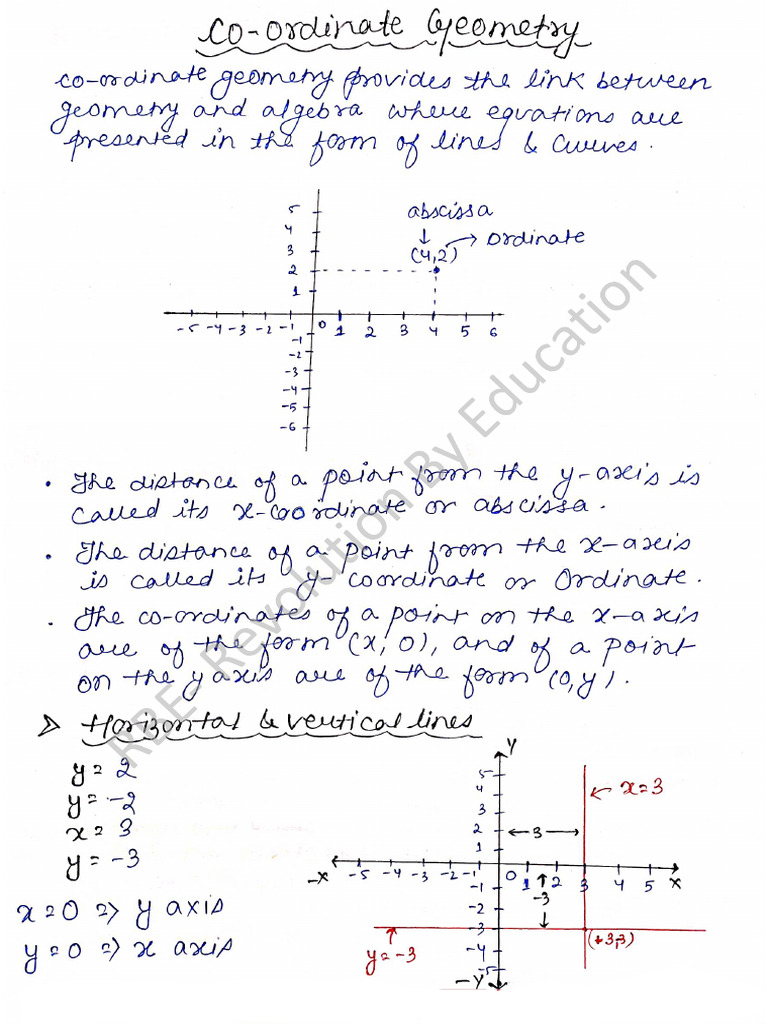 Co-ordinate Geometry
co-ordinate geometry provides the link between
geometry and algebra where equations are
presented in the form of lines & curves.
5
4
3
2
1
abscissa
↓
(4,2) → Ordinate
-5 -4 -3 -2 -1 0 1 2 3 4 5 6
-1
-2
-3
-4
-5
-6
• The distance of a point from the y-axis is
called its x-coordinate or abscissa.
• The distance of a point from the x-axis
is called its y-coordinate or Ordinate.
• The co-ordinates of a point on the x-axis
are of the form (x, 0), and of a point
on the y axis are of the form (0,y).
RBE- Revolution By Education
➢ Horizontal & vertical lines
y = 2
y = -2
x = 3
y = -3
x=0 => y axis
y=0 => x axis
Y
5
4
3
2
1
← x=3
←3→
-X -5 -4 -3 -2 -1 0 1 2 3 4 5 X
-1
-2
-3
-4
-5
-3
y=-3
(+3,3)
-Y